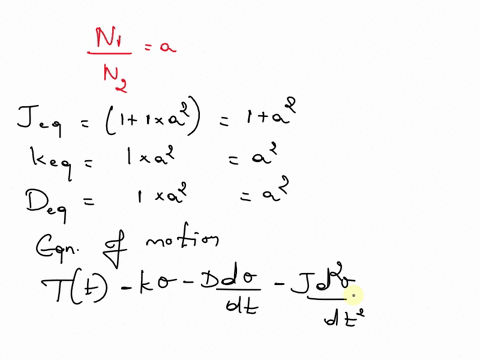 N1/N2 = a
Jeq = (1+1×a²) = 1+a²
Keq = 1×a² = a²
Deq = 1×a² = a²
Eqn. of motion
T(t) - kσ - D dσ/dt - J d²σ/dt²